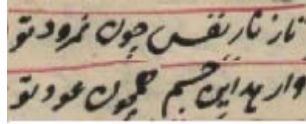 تا ز نار نفس چون نمرود تو
وارهد این جسم همچون عود تو